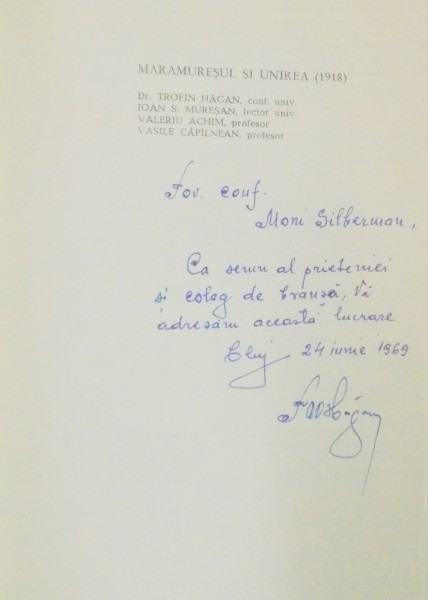 MARAMUREȘUL ȘI UNIREA (1918)
Dr. TROFIN HĂGAN, conf. univ.
IOAN S. MUREȘAN, lector univ
VALERIU ACHIM, profesor
VASILE CĂPÎLNEAN, profesor
Tov. conf.
Moni Silberman,
Ca semn al prieteniei
si coleg de branșă, Vă
adresăm această lucrare
Cluj 24 iunie 1969